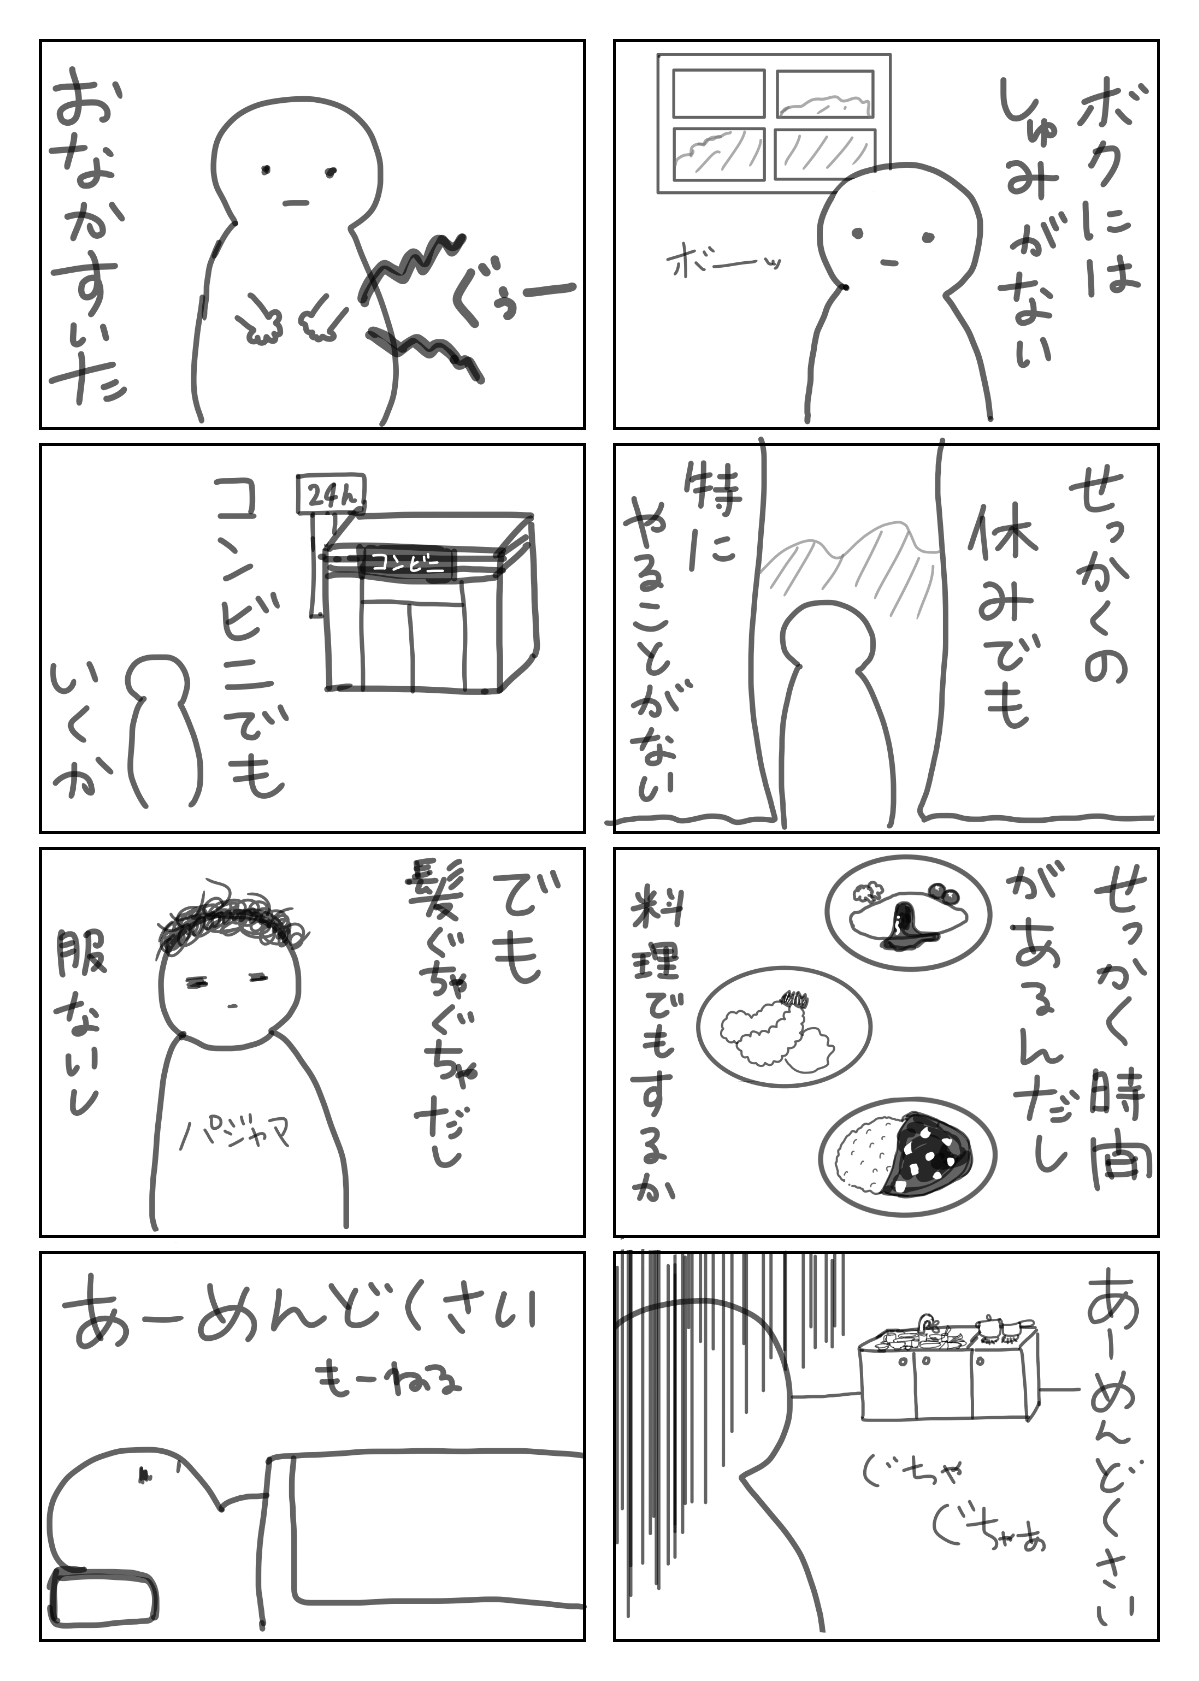 ボクには
しゅみがない
ボーー
せっかくの
休みでも
特に
やることがない
せっかく時間
があるんだし
料理でもするか
あーめんどくさい
ぐちゃ
ぐちゃぁ
ぐぅー
おなかすいた
24h
コンビニ
コンビニでも
いくか
でも
髪ぐちゃぐちゃだし
パジャマ
服ないし
あーめんどくさい
もーねる